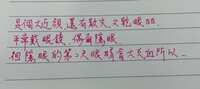 是個大近視 還有散光又乾眼QQ
平常戴眼鏡 偶爾隱眼
但隱眼的第二天眼睛會大大血所以...